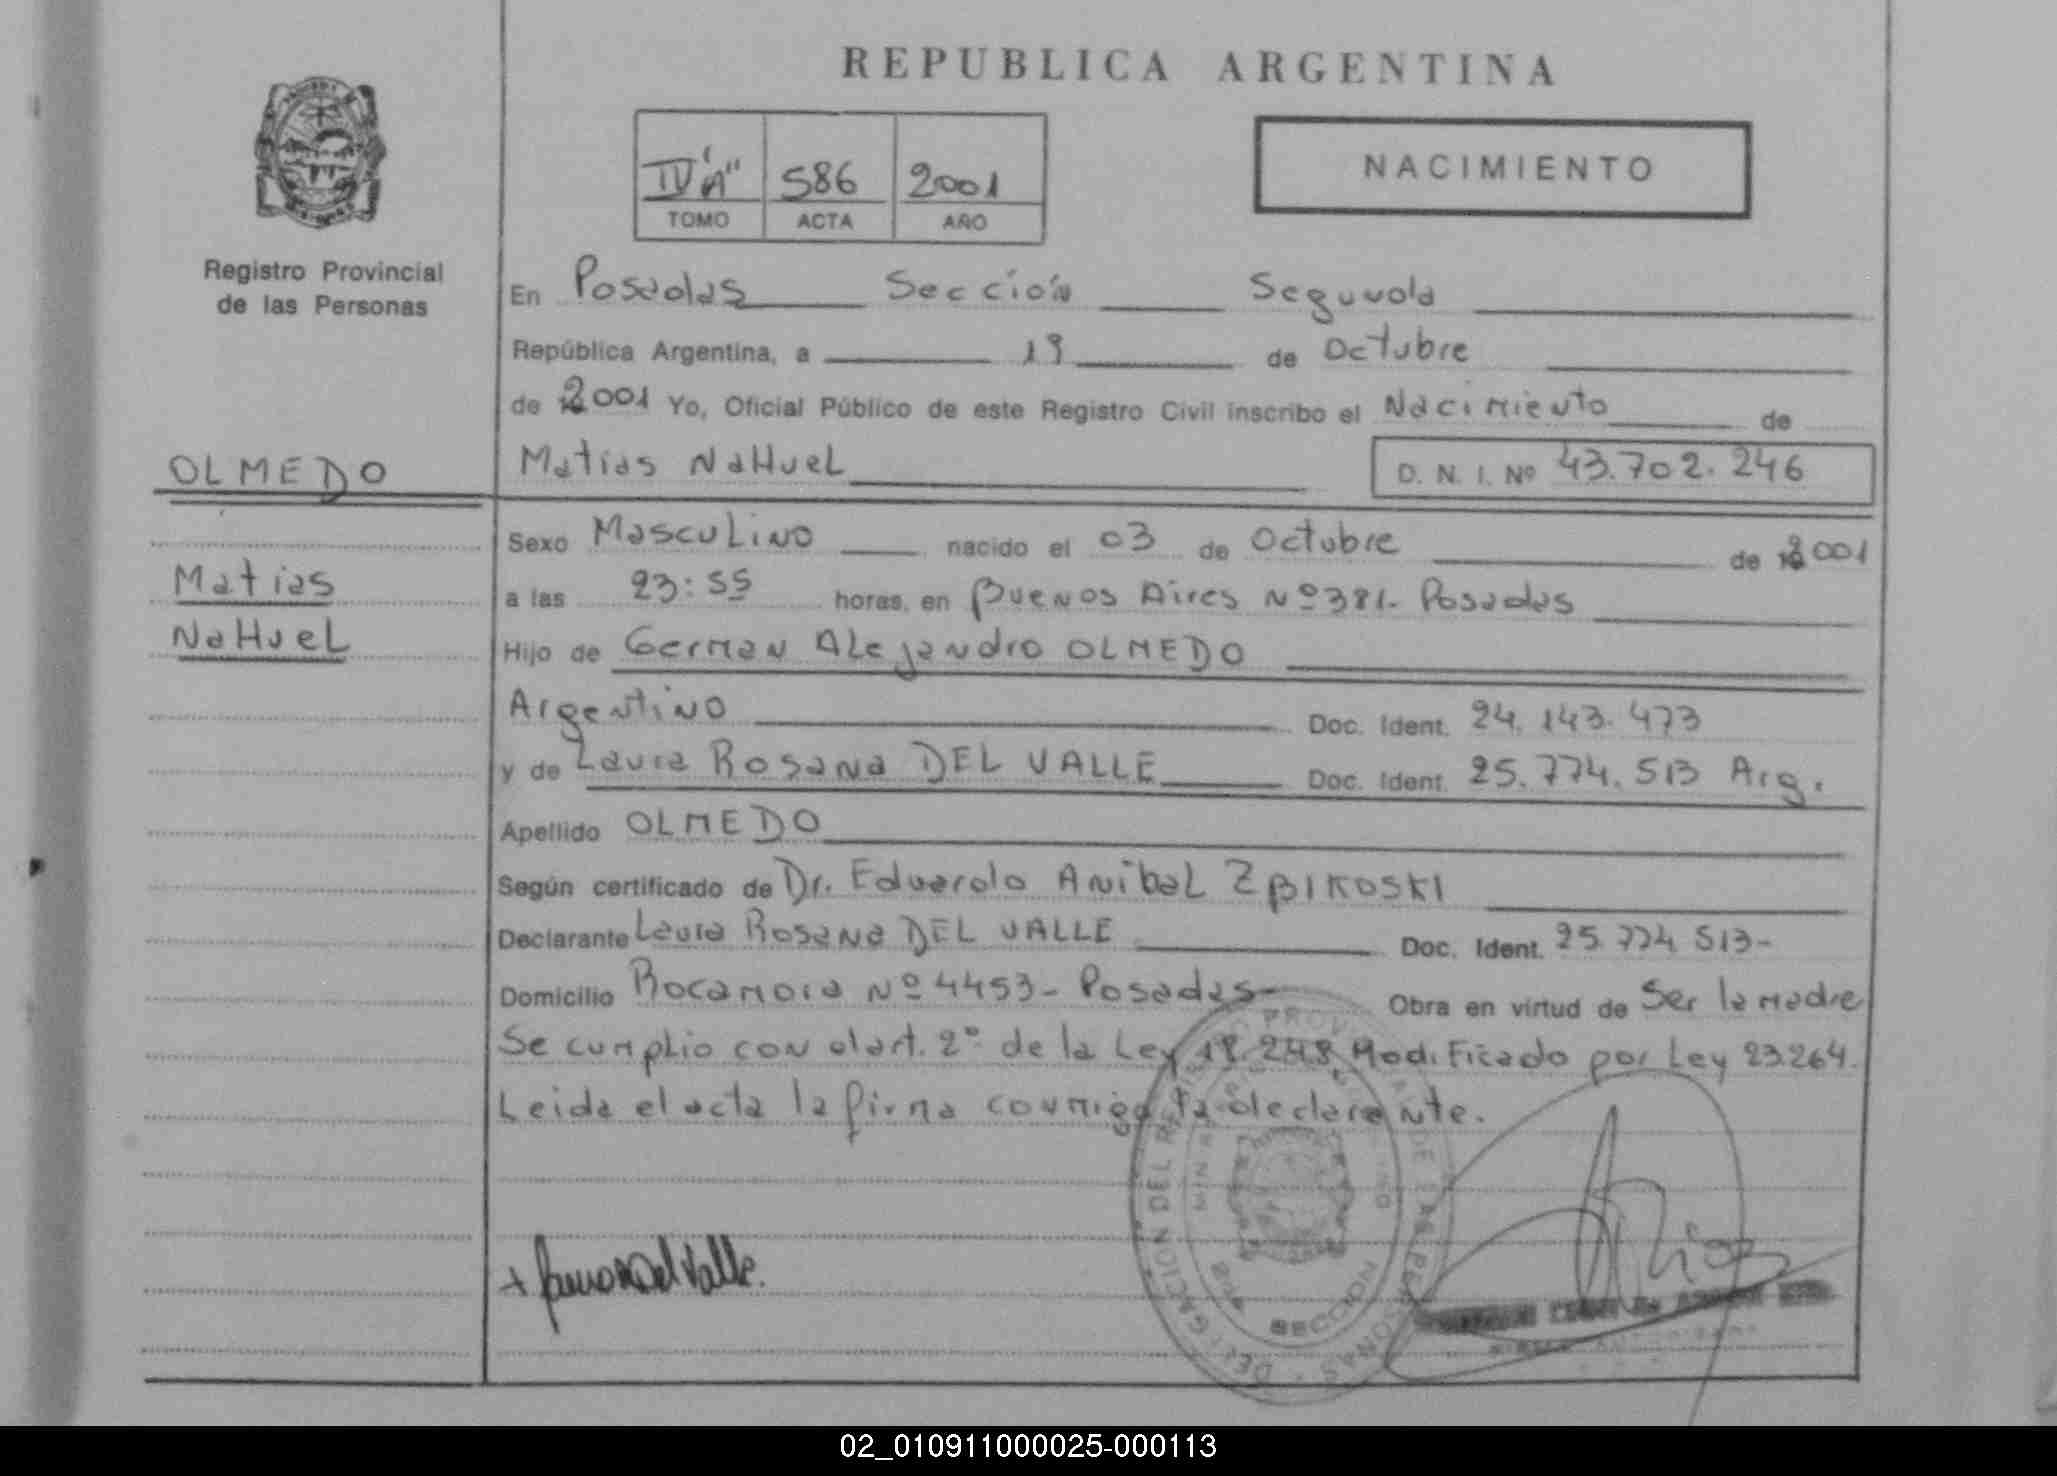 REPUBLICA ARGENTINA
NACIMIENTO
IV "A" 586 2001
TOMO ACTA AÑO
Registro Provincial
de las Personas
En Posadas Sección Segunda
República Argentina, a 19 de Octubre
de 2001 Yo, Oficial Público de este Registro Civil inscribo el Nacimiento de
OLMEDO
Matias NaHueL D. N. I. Nº 43.702.246
Sexo MascuLino nacido el 03 de Octubre de 2001
Matias
NaHueL
a las 23:55 horas, en Buenos Aires Nº 381- Posadas
Hijo de German ALejandro OLMEDO
Argentino Doc. Ident. 24.143.473
y de Laura Rosana DEL VALLE Doc. Ident. 25.774.513 Arg.
Apellido OLMEDO
Según certificado de Dr. Eduardo AnibaL ZBIKOSKI
Declarante Laura Rosana DEL VALLE Doc. Ident. 25.774.513-
Domicilio Rocamora Nº 4453- Posadas- Obra en virtud de Ser la madre
Se cumplio con el art. 2º de la Ley 18.248 Modificado por Ley 23.264.
Leida el acta la firma conmigo la declarante.
DELEGACION DEL REGISTRO PROVINCIAL DE LAS PERSONAS
SECCION
Del Valle
02_010911000025-000113